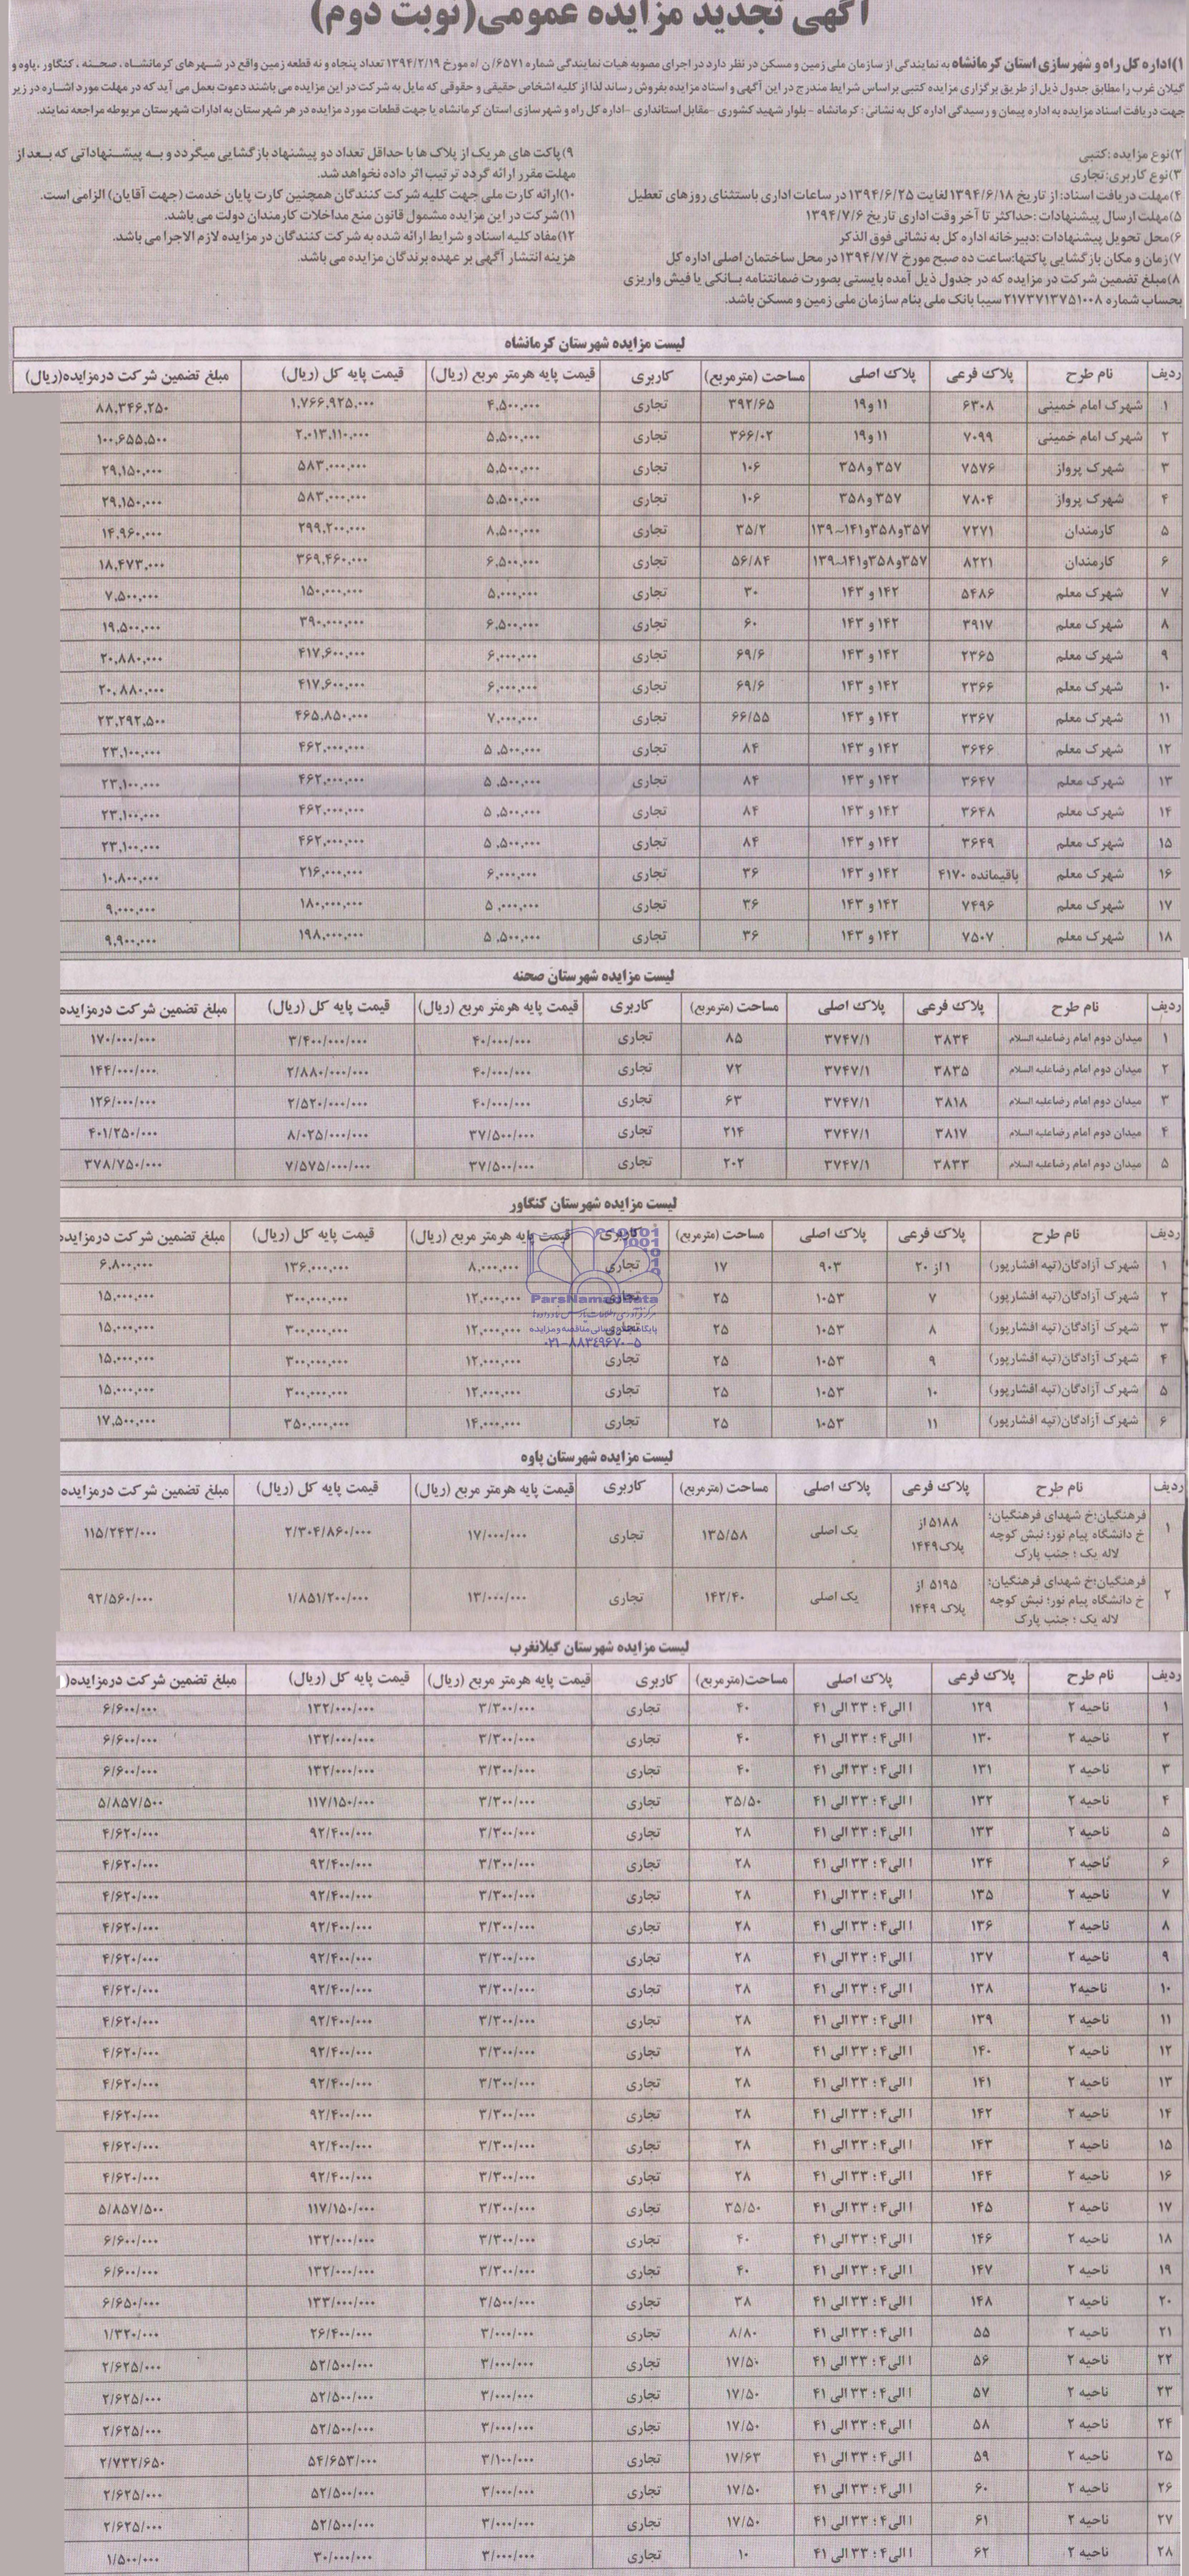 آگهی تجدید مزایده عمومی(نوبت دوم)
۱)اداره کل راه و شهرسازی استان کرمانشاه به نمایندگی از سازمان ملی زمین و مسکن در نظر دارد در اجرای مصوبه هیات نمایندگی شماره ۶۵۷۱/ن /ه مورخ ۱۳۹۴/۲/۱۹ تعداد پنجاه و نه قطعه زمین واقع در شهرهای کرمانشاه ، صحنه ، کنگاور ،پاوه و
گیلان غرب را مطابق جدول ذیل از طریق برگزاری مزایده کتبی بر اساس شرایط مندرج در این آگهی و اسناد مزایده بفروش رساند لذا از کلیه اشخاص حقیقی و حقوقی که مایل به شرکت در این مزایده می باشند دعوت بعمل می آید که در مهلت مورد اشاره در زیر
جهت دریافت اسناد مزایده به اداره پیمان و رسیدگی اداره کل به نشانی : کرمانشاه - بلوار شهید کشوری -مقابل استانداری -اداره کل راه و شهرسازی استان کرمانشاه یا جهت قطعات مورد مزایده در هر شهرستان به ادارات شهرستان مربوطه مراجعه نمایند.
۲)نوع مزایده :کتبی
۳)نوع کاربری: تجاری
۴)مهلت دریافت اسناد: از تاریخ ۱۳۹۴/۶/۱۸ لغایت ۱۳۹۴/۶/۲۵ در ساعات اداری باستثنای روزهای تعطیل
۵)مهلت ارسال پیشنهادات :حداکثر تا آخر وقت اداری تاریخ ۱۳۹۴/۷/۶
۶)محل تحویل پیشنهادات :دبیرخانه اداره کل به نشانی فوق الذکر
۷)زمان و مکان بازگشایی پاکتها:ساعت ده صبح مورخ ۱۳۹۴/۷/۷ در محل ساختمان اصلی اداره کل
۸)مبلغ تضمین شرکت در مزایده که در جدول ذیل آمده بایستی بصورت ضمانتنامه بانکی یا فیش واریزی
بحساب شماره ۲۱۷۳۷۱۳۷۵۱۰۰۸ سیبا بانک ملی بنام سازمان ملی زمین و مسکن باشد.
۹)پاکت های هر یک از پلاک ها با حداقل تعداد دو پیشنهاد بازگشایی میگردد و به پیشنهاداتی که بعد از
مهلت مقرر ارائه گردد ترتیب اثر داده نخواهد شد.
۱۰)ارائه کارت ملی جهت کلیه شرکت کنندگان همچنین کارت پایان خدمت (جهت آقایان) الزامی است.
۱۱)شرکت در این مزایده مشمول قانون منع مداخلات کارمندان دولت می باشد.
۱۲)مفاد کلیه اسناد و شرایط ارائه شده به شرکت کنندگان در مزایده لازم الاجرا می باشد.
هزینه انتشار آگهی بر عهده برندگان مزایده می باشد.
لیست مزایده شهرستان کرمانشاه
ردیف نام طرح پلاک فرعی پلاک اصلی مساحت (مترمربع) کاربری قیمت پایه هرمتر مربع (ریال) قیمت پایه کل (ریال) مبلغ تضمین شرکت درمزایده(ریال)
۱ شهرک امام خمینی ۶۳۰۸ ۱۱ و۱۹ ۳۹۲/۶۵ تجاری ۴,۵۰۰,۰۰۰ ۱,۷۶۶,۹۲۵,۰۰۰ ۸۸,۳۴۶,۲۵۰
۲ شهرک امام خمینی ۷۰۹۹ ۱۱ و۱۹ ۳۶۶/۰۲ تجاری ۵,۵۰۰,۰۰۰ ۲,۰۱۳,۱۱۰,۰۰۰ ۱۰۰,۶۵۵,۵۰۰
۳ شهرک پرواز ۷۵۷۶ ۳۵۷ و۳۵۸ ۱۰۶ تجاری ۵,۵۰۰,۰۰۰ ۵۸۳,۰۰۰,۰۰۰ ۲۹,۱۵۰,۰۰۰
۴ شهرک پرواز ۷۸۰۴ ۳۵۷ و۳۵۸ ۱۰۶ تجاری ۵,۵۰۰,۰۰۰ ۵۸۳,۰۰۰,۰۰۰ ۲۹,۱۵۰,۰۰۰
۵ کارمندان ۷۲۷۱ ۳۵۷و۳۵۸و۱۴۱-۱۳۹ ۳۵/۲ تجاری ۸,۵۰۰,۰۰۰ ۲۹۹,۲۰۰,۰۰۰ ۱۴,۹۶۰,۰۰۰
۶ کارمندان ۸۲۲۱ ۳۵۷و۳۵۸و۱۴۱-۱۳۹ ۵۶/۸۴ تجاری ۶,۵۰۰,۰۰۰ ۳۶۹,۴۶۰,۰۰۰ ۱۸,۴۷۳,۰۰۰
۷ شهرک معلم ۵۴۸۶ ۱۴۲ و ۱۴۳ ۳۰ تجاری ۵,۰۰۰,۰۰۰ ۱۵۰,۰۰۰,۰۰۰ ۷,۵۰۰,۰۰۰
۸ شهرک معلم ۳۹۱۷ ۱۴۲ و ۱۴۳ ۶۰ تجاری ۶,۵۰۰,۰۰۰ ۳۹۰,۰۰۰,۰۰۰ ۱۹,۵۰۰,۰۰۰
۹ شهرک معلم ۲۳۶۵ ۱۴۲ و ۱۴۳ ۶۹/۶ تجاری ۶,۰۰۰,۰۰۰ ۴۱۷,۶۰۰,۰۰۰ ۲۰,۸۸۰,۰۰۰
۱۰ شهرک معلم ۲۳۶۶ ۱۴۲ و ۱۴۳ ۶۹/۶ تجاری ۶,۰۰۰,۰۰۰ ۴۱۷,۶۰۰,۰۰۰ ۲۰,۸۸۰,۰۰۰
۱۱ شهرک معلم ۲۳۶۷ ۱۴۲ و ۱۴۳ ۶۶/۵۵ تجاری ۷,۰۰۰,۰۰۰ ۴۶۵,۸۵۰,۰۰۰ ۲۳,۲۹۲,۵۰۰
۱۲ شهرک معلم ۳۶۴۶ ۱۴۲ و ۱۴۳ ۸۴ تجاری ۵,۵۰۰,۰۰۰ ۴۶۲,۰۰۰,۰۰۰ ۲۳,۱۰۰,۰۰۰
۱۳ شهرک معلم ۳۶۴۷ ۱۴۲ و ۱۴۳ ۸۴ تجاری ۵,۵۰۰,۰۰۰ ۴۶۲,۰۰۰,۰۰۰ ۲۳,۱۰۰,۰۰۰
۱۴ شهرک معلم ۳۶۴۸ ۱۴۲ و ۱۴۳ ۸۴ تجاری ۵,۵۰۰,۰۰۰ ۴۶۲,۰۰۰,۰۰۰ ۲۳,۱۰۰,۰۰۰
۱۵ شهرک معلم ۳۶۴۹ ۱۴۲ و ۱۴۳ ۸۴ تجاری ۵,۵۰۰,۰۰۰ ۴۶۲,۰۰۰,۰۰۰ ۲۳,۱۰۰,۰۰۰
۱۶ شهرک معلم باقیمانده ۴۱۷۰ ۱۴۲ و ۱۴۳ ۳۶ تجاری ۶,۰۰۰,۰۰۰ ۲۱۶,۰۰۰,۰۰۰ ۱۰,۸۰۰,۰۰۰
۱۷ شهرک معلم ۷۴۹۶ ۱۴۲ و ۱۴۳ ۳۶ تجاری ۵,۰۰۰,۰۰۰ ۱۸۰,۰۰۰,۰۰۰ ۹,۰۰۰,۰۰۰
۱۸ شهرک معلم ۷۵۰۷ ۱۴۲ و ۱۴۳ ۳۶ تجاری ۵,۵۰۰,۰۰۰ ۱۹۸,۰۰۰,۰۰۰ ۹,۹۰۰,۰۰۰
لیست مزایده شهرستان صحنه
ردیف نام طرح پلاک فرعی پلاک اصلی مساحت (مترمربع) کاربری قیمت پایه هرمتر مربع (ریال) قیمت پایه کل (ریال) مبلغ تضمین شرکت درمزایده
۱ میدان دوم امام رضا علیه السلام ۳۸۳۴ ۳۷۴۷/۱ ۸۵ تجاری ۴۰/۰۰۰/۰۰۰ ۳/۴۰۰/۰۰۰/۰۰۰ ۱۷۰/۰۰۰/۰۰۰
۲ میدان دوم امام رضا علیه السلام ۳۸۳۵ ۳۷۴۷/۱ ۷۲ تجاری ۴۰/۰۰۰/۰۰۰ ۲/۸۸۰/۰۰۰/۰۰۰ ۱۴۴/۰۰۰/۰۰۰
۳ میدان دوم امام رضا علیه السلام ۳۸۱۸ ۳۷۴۷/۱ ۶۳ تجاری ۴۰/۰۰۰/۰۰۰ ۲/۵۲۰/۰۰۰/۰۰۰ ۱۲۶/۰۰۰/۰۰۰
۴ میدان دوم امام رضا علیه السلام ۳۸۱۷ ۳۷۴۷/۱ ۲۱۴ تجاری ۳۷/۵۰۰/۰۰۰ ۸/۰۲۵/۰۰۰/۰۰۰ ۴۰۱/۲۵۰/۰۰۰
۵ میدان دوم امام رضا علیه السلام ۳۸۳۳ ۳۷۴۷/۱ ۲۰۲ تجاری ۳۷/۵۰۰/۰۰۰ ۷/۵۷۵/۰۰۰/۰۰۰ ۳۷۸/۷۵۰/۰۰۰
لیست مزایده شهرستان کنگاور
ردیف نام طرح پلاک فرعی پلاک اصلی مساحت (مترمربع) کاربری قیمت پایه هرمتر مربع (ریال) قیمت پایه کل (ریال) مبلغ تضمین شرکت درمزایده
۱ شهرک آزادگان(تپه افشارپور) ۱ از ۲۰ ۹۰۳ ۱۷ تجاری ۸,۰۰۰,۰۰۰ ۱۳۶,۰۰۰,۰۰۰ ۶,۸۰۰,۰۰۰
۲ شهرک آزادگان(تپه افشارپور) ۷ ۱۰۵۳ ۲۵ تجاری ۱۲,۰۰۰,۰۰۰ ۳۰۰,۰۰۰,۰۰۰ ۱۵,۰۰۰,۰۰۰
۳ شهرک آزادگان(تپه افشارپور) ۸ ۱۰۵۳ ۲۵ تجاری ۱۲,۰۰۰,۰۰۰ ۳۰۰,۰۰۰,۰۰۰ ۱۵,۰۰۰,۰۰۰
۴ شهرک آزادگان(تپه افشارپور) ۹ ۱۰۵۳ ۲۵ تجاری ۱۲,۰۰۰,۰۰۰ ۳۰۰,۰۰۰,۰۰۰ ۱۵,۰۰۰,۰۰۰
۵ شهرک آزادگان(تپه افشارپور) ۱۰ ۱۰۵۳ ۲۵ تجاری ۱۲,۰۰۰,۰۰۰ ۳۰۰,۰۰۰,۰۰۰ ۱۵,۰۰۰,۰۰۰
۶ شهرک آزادگان(تپه افشارپور) ۱۱ ۱۰۵۳ ۲۵ تجاری ۱۴,۰۰۰,۰۰۰ ۳۵۰,۰۰۰,۰۰۰ ۱۷,۵۰۰,۰۰۰
ParsNamadData
پایگاه اطلاع رسانی مناقصه و مزایده
۰۲۱-۸۸۳۴۹۶۷۰-۵
لیست مزایده شهرستان پاوه
ردیف نام طرح پلاک فرعی پلاک اصلی مساحت (مترمربع) کاربری قیمت پایه هرمتر مربع (ریال) قیمت پایه کل (ریال) مبلغ تضمین شرکت درمزایده
۱ فرهنگیان؛خ شهدای فرهنگیان؛
خ دانشگاه پیام نور؛ نبش کوچه
لاله یک ؛ جنب پارک
۵۱۸۸ از
پلاک ۱۴۴۹
یک اصلی ۱۳۵/۵۸ تجاری ۱۷/۰۰۰/۰۰۰ ۲/۳۰۴/۸۶۰/۰۰۰ ۱۱۵/۲۴۳/۰۰۰
۲ فرهنگیان؛خ شهدای فرهنگیان؛
خ دانشگاه پیام نور؛ نبش کوچه
لاله یک ؛ جنب پارک
۵۱۹۵ از
پلاک ۱۴۴۹
یک اصلی ۱۴۲/۴۰ تجاری ۱۳/۰۰۰/۰۰۰ ۱/۸۵۱/۲۰۰/۰۰۰ ۹۲/۵۶۰/۰۰۰
لیست مزایده شهرستان گیلانغرب
ردیف نام طرح پلاک فرعی پلاک اصلی مساحت(مترمربع) کاربری قیمت پایه هرمتر مربع (ریال) قیمت پایه کل (ریال) مبلغ تضمین شرکت درمزایده(
۱ ناحیه ۲ ۱۲۹ ۱الی۴ ؛ ۳۳ الی ۴۱ ۴۰ تجاری ۳/۳۰۰/۰۰۰ ۱۳۲/۰۰۰/۰۰۰ ۶/۶۰۰/۰۰۰
۲ ناحیه ۲ ۱۳۰ ۱الی۴ ؛ ۳۳ الی ۴۱ ۴۰ تجاری ۳/۳۰۰/۰۰۰ ۱۳۲/۰۰۰/۰۰۰ ۶/۶۰۰/۰۰۰
۳ ناحیه ۲ ۱۳۱ ۱الی۴ ؛ ۳۳ الی ۴۱ ۴۰ تجاری ۳/۳۰۰/۰۰۰ ۱۳۲/۰۰۰/۰۰۰ ۶/۶۰۰/۰۰۰
۴ ناحیه ۲ ۱۳۲ ۱الی۴ ؛ ۳۳ الی ۴۱ ۳۵/۵۰ تجاری ۳/۳۰۰/۰۰۰ ۱۱۷/۱۵۰/۰۰۰ ۵/۸۵۷/۵۰۰
۵ ناحیه ۲ ۱۳۳ ۱الی۴ ؛ ۳۳ الی ۴۱ ۲۸ تجاری ۳/۳۰۰/۰۰۰ ۹۲/۴۰۰/۰۰۰ ۴/۶۲۰/۰۰۰
۶ ناحیه ۲ ۱۳۴ ۱الی۴ ؛ ۳۳ الی ۴۱ ۲۸ تجاری ۳/۳۰۰/۰۰۰ ۹۲/۴۰۰/۰۰۰ ۴/۶۲۰/۰۰۰
۷ ناحیه ۲ ۱۳۵ ۱الی۴ ؛ ۳۳ الی ۴۱ ۲۸ تجاری ۳/۳۰۰/۰۰۰ ۹۲/۴۰۰/۰۰۰ ۴/۶۲۰/۰۰۰
۸ ناحیه ۲ ۱۳۶ ۱الی۴ ؛ ۳۳ الی ۴۱ ۲۸ تجاری ۳/۳۰۰/۰۰۰ ۹۲/۴۰۰/۰۰۰ ۴/۶۲۰/۰۰۰
۹ ناحیه ۲ ۱۳۷ ۱الی۴ ؛ ۳۳ الی ۴۱ ۲۸ تجاری ۳/۳۰۰/۰۰۰ ۹۲/۴۰۰/۰۰۰ ۴/۶۲۰/۰۰۰
۱۰ ناحیه۲ ۱۳۸ ۱الی۴ ؛ ۳۳ الی ۴۱ ۲۸ تجاری ۳/۳۰۰/۰۰۰ ۹۲/۴۰۰/۰۰۰ ۴/۶۲۰/۰۰۰
۱۱ ناحیه ۲ ۱۳۹ ۱الی۴ ؛ ۳۳ الی ۴۱ ۲۸ تجاری ۳/۳۰۰/۰۰۰ ۹۲/۴۰۰/۰۰۰ ۴/۶۲۰/۰۰۰
۱۲ ناحیه ۲ ۱۴۰ ۱الی۴ ؛ ۳۳ الی ۴۱ ۲۸ تجاری ۳/۳۰۰/۰۰۰ ۹۲/۴۰۰/۰۰۰ ۴/۶۲۰/۰۰۰
۱۳ ناحیه ۲ ۱۴۱ ۱الی۴ ؛ ۳۳ الی ۴۱ ۲۸ تجاری ۳/۳۰۰/۰۰۰ ۹۲/۴۰۰/۰۰۰ ۴/۶۲۰/۰۰۰
۱۴ ناحیه ۲ ۱۴۲ ۱الی۴ ؛ ۳۳ الی ۴۱ ۲۸ تجاری ۳/۳۰۰/۰۰۰ ۹۲/۴۰۰/۰۰۰ ۴/۶۲۰/۰۰۰
۱۵ ناحیه ۲ ۱۴۳ ۱الی۴ ؛ ۳۳ الی ۴۱ ۲۸ تجاری ۳/۳۰۰/۰۰۰ ۹۲/۴۰۰/۰۰۰ ۴/۶۲۰/۰۰۰
۱۶ ناحیه ۲ ۱۴۴ ۱الی۴ ؛ ۳۳ الی ۴۱ ۲۸ تجاری ۳/۳۰۰/۰۰۰ ۹۲/۴۰۰/۰۰۰ ۴/۶۲۰/۰۰۰
۱۷ ناحیه ۲ ۱۴۵ ۱الی۴ ؛ ۳۳ الی ۴۱ ۳۵/۵۰ تجاری ۳/۳۰۰/۰۰۰ ۱۱۷/۱۵۰/۰۰۰ ۵/۸۵۷/۵۰۰
۱۸ ناحیه ۲ ۱۴۶ ۱الی۴ ؛ ۳۳ الی ۴۱ ۴۰ تجاری ۳/۳۰۰/۰۰۰ ۱۳۲/۰۰۰/۰۰۰ ۶/۶۰۰/۰۰۰
۱۹ ناحیه ۲ ۱۴۷ ۱الی۴ ؛ ۳۳ الی ۴۱ ۴۰ تجاری ۳/۳۰۰/۰۰۰ ۱۳۲/۰۰۰/۰۰۰ ۶/۶۰۰/۰۰۰
۲۰ ناحیه ۲ ۱۴۸ ۱الی۴ ؛ ۳۳ الی ۴۱ ۳۸ تجاری ۳/۵۰۰/۰۰۰ ۱۳۳/۰۰۰/۰۰۰ ۶/۶۵۰/۰۰۰
۲۱ ناحیه ۲ ۵۵ ۱الی۴ ؛ ۳۳ الی ۴۱ ۸/۸۰ تجاری ۳/۰۰۰/۰۰۰ ۲۶/۴۰۰/۰۰۰ ۱/۳۲۰/۰۰۰
۲۲ ناحیه ۲ ۵۶ ۱الی۴ ؛ ۳۳ الی ۴۱ ۱۷/۵۰ تجاری ۳/۰۰۰/۰۰۰ ۵۲/۵۰۰/۰۰۰ ۲/۶۲۵/۰۰۰
۲۳ ناحیه ۲ ۵۷ ۱الی۴ ؛ ۳۳ الی ۴۱ ۱۷/۵۰ تجاری ۳/۰۰۰/۰۰۰ ۵۲/۵۰۰/۰۰۰ ۲/۶۲۵/۰۰۰
۲۴ ناحیه ۲ ۵۸ ۱الی۴ ؛ ۳۳ الی ۴۱ ۱۷/۵۰ تجاری ۳/۰۰۰/۰۰۰ ۵۲/۵۰۰/۰۰۰ ۲/۶۲۵/۰۰۰
۲۵ ناحیه ۲ ۵۹ ۱الی۴ ؛ ۳۳ الی ۴۱ ۱۷/۶۳ تجاری ۳/۱۰۰/۰۰۰ ۵۴/۶۵۳/۰۰۰ ۲/۷۳۲/۶۵۰
۲۶ ناحیه ۲ ۶۰ ۱الی۴ ؛ ۳۳ الی ۴۱ ۱۷/۵۰ تجاری ۳/۰۰۰/۰۰۰ ۵۲/۵۰۰/۰۰۰ ۲/۶۲۵/۰۰۰
۲۷ ناحیه ۲ ۶۱ ۱الی۴ ؛ ۳۳ الی ۴۱ ۱۷/۵۰ تجاری ۳/۰۰۰/۰۰۰ ۵۲/۵۰۰/۰۰۰ ۲/۶۲۵/۰۰۰
۲۸ ناحیه ۲ ۶۲ ۱الی۴ ؛ ۳۳ الی ۴۱ ۱۰ تجاری ۳/۰۰۰/۰۰۰ ۳۰/۰۰۰/۰۰۰ ۱/۵۰۰/۰۰۰